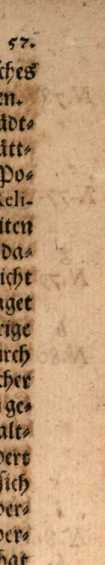 57.
sches
en.
ädt⸗
ätt⸗
Po⸗
Keli⸗
iten
da⸗
icht
aget
rige
urch
cher
ge⸗
alt⸗
dert
sich
ver⸗
der⸗
hat